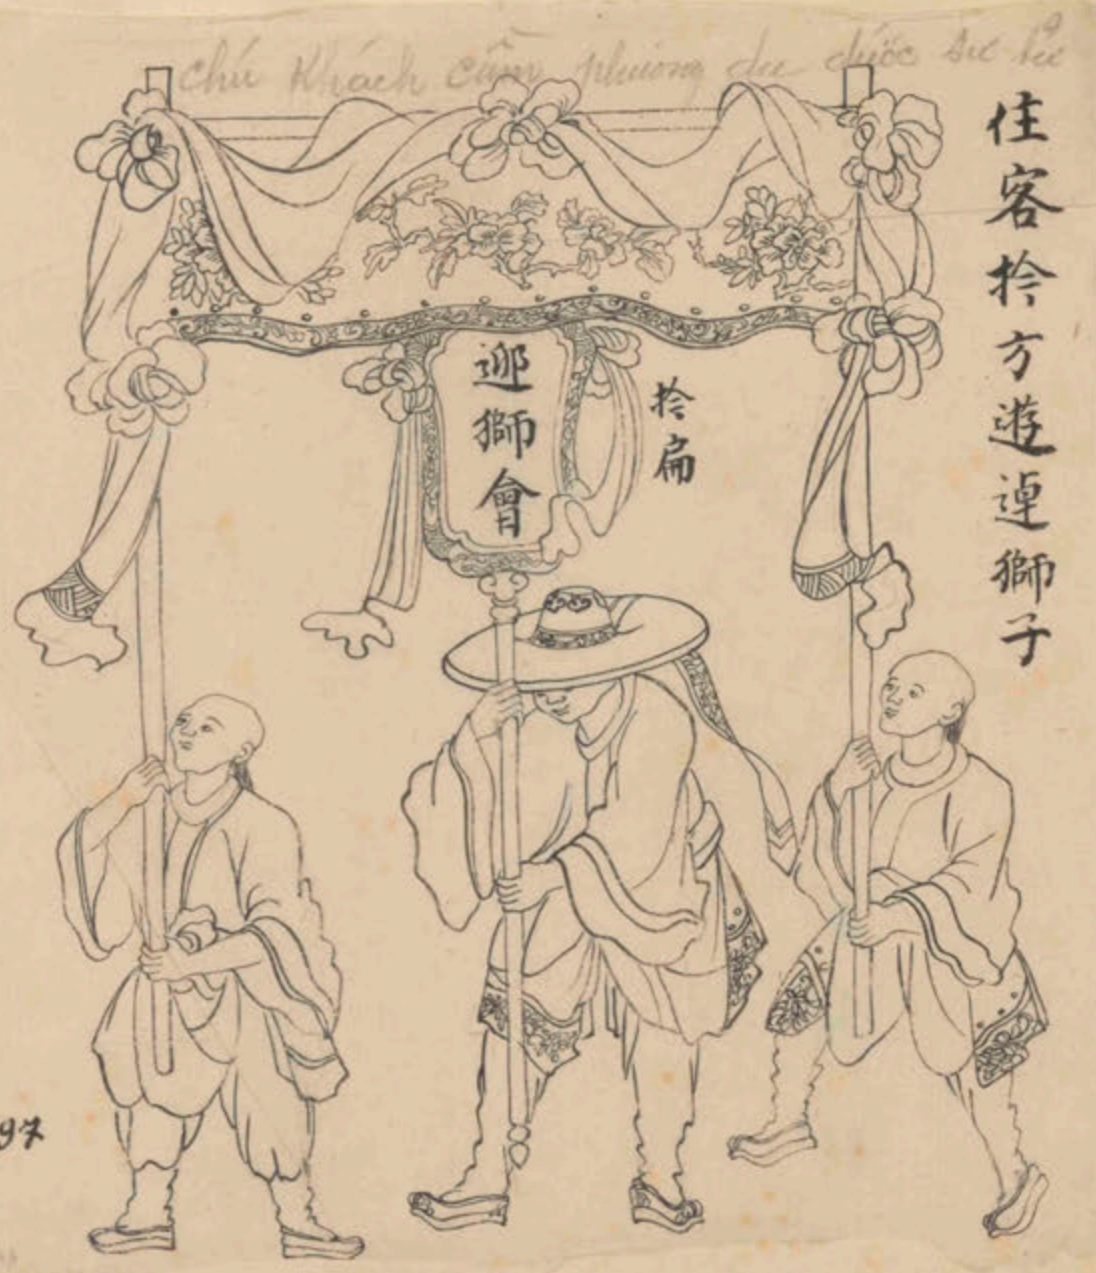 chú Khách cầm phương du dước sư tử
住客扲方遊逴獅子
迎獅會
扲扁
97